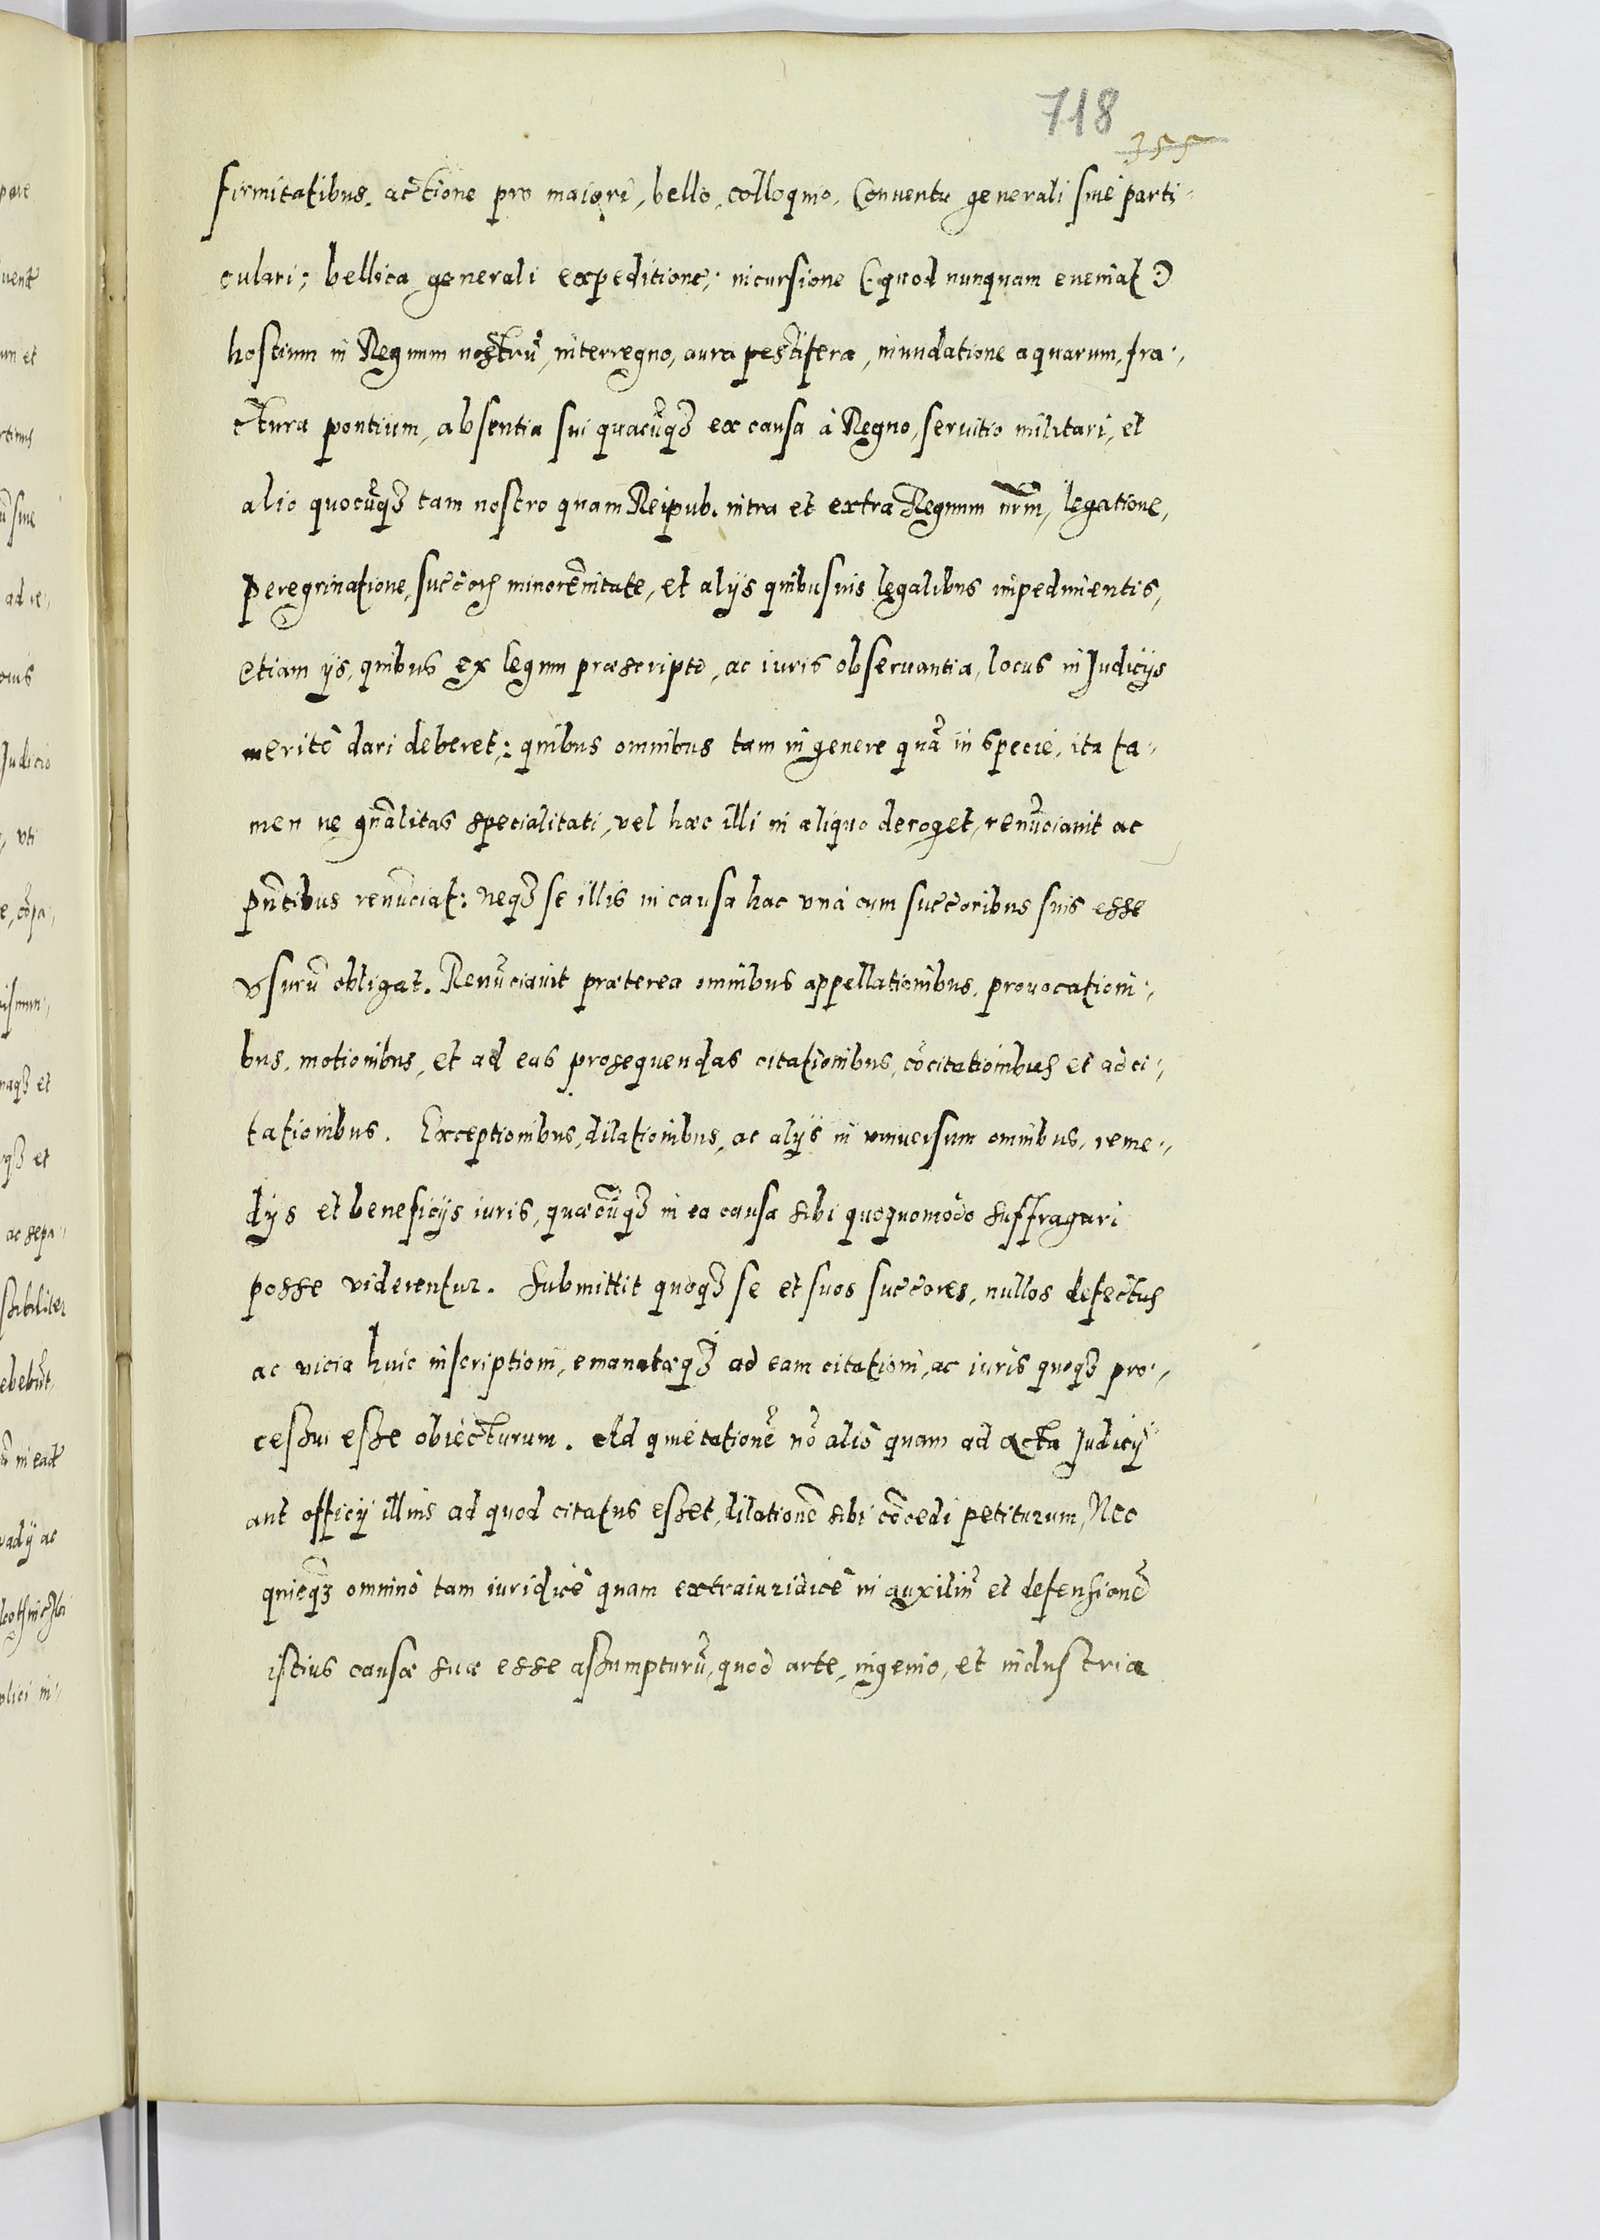 718
355
firmitatibus, actione pro maiori, bello, colloquio, Conventu generali siue parti-
culari; bellica generali expeditione; incursione (quod nunquam eueniat)
hostium in Regnum nostrũ, interregno, aura pestifera, inundatione aquarum, fra-
ctura pontium, absentia sui quacũqȝ ex causa à Regno, seruitio militari, et
alio quocũqȝ tam nostro quam Reipub. intra et extra Regnum nr̃m, legatione,
peregrinatione, succ̃orũ minorẽnitate, et alijs quibusuis legalibus impedimentis,
etiam ijs, quibus ex legum præscripto, ac iuris obseruantia, locus in Judicijs
meritò dari deberet; quibus omnibus tam in genere quã in specie, ita ta-
men ne gñalitas specialitati, vel hæc illi in aliquo deroget, renũciauit ac
pñtibus renũciat: neqȝ se illis in causa hac vnà cum succ̃oribus suis esse
vsurũ obligat. Renũciauit præterea omnibus appellationibus, prouocationi-
bus, motionibus, et ad eas prosequendas citationibus, cõcitationibus et adci-
tationibus. Exceptionibus, dilationibus, ac alijs in vniuersum omnibus, reme-
dijs et beneficijs iuris, quæcũqȝ in ea causa sibi quoquomodo suffragari
posse viderentur. Submittit quoqȝ se et suos succ̃ores, nullos defectus
ac vicia huic inscriptioni, emanatæqȝ ad eam citationi, ac iuris quoqȝ pro-
cessui esse obiecturum. Ad quietationẽ nõ aliò quam ad acta Judicij
aut officij illius ad quod citatus esset, dilationẽ sibi cõcedi petiturum, Nec
quicqȝ omnino tam iuridicè quam extraiuridicè in auxiliũ et defensionẽ
istius causæ suæ esse assumpturũ, quod arte, ingenio, et industria